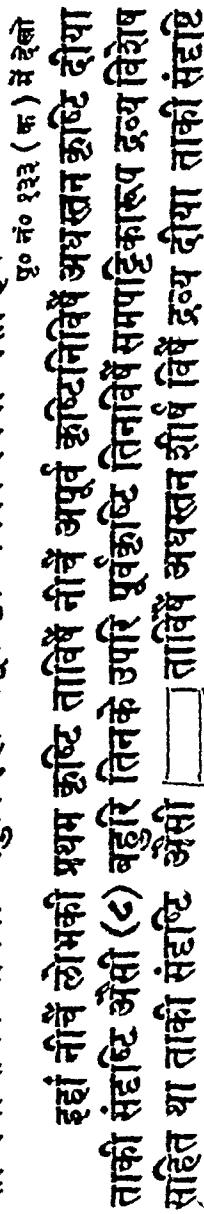 पृ० नं० १२३ ( क ) में देखो
इहां नीचै लोभकी प्रथम कृष्टि ताविषैं नीचैं अपूर्व कृष्टिनिविषैं अधस्तन कृष्टि दीया
ताकी संदृष्टि औसी (८) बहुरि तिनके उपरि पूर्वकृष्टि तिनविषैं समपट्टिकारूप द्रव्य विशेष
सहित था ताकी संदृष्टि औसी ताविषैं अधस्तन शीर्ष विषैं द्रव्य दीया ताकी संदृष्टि